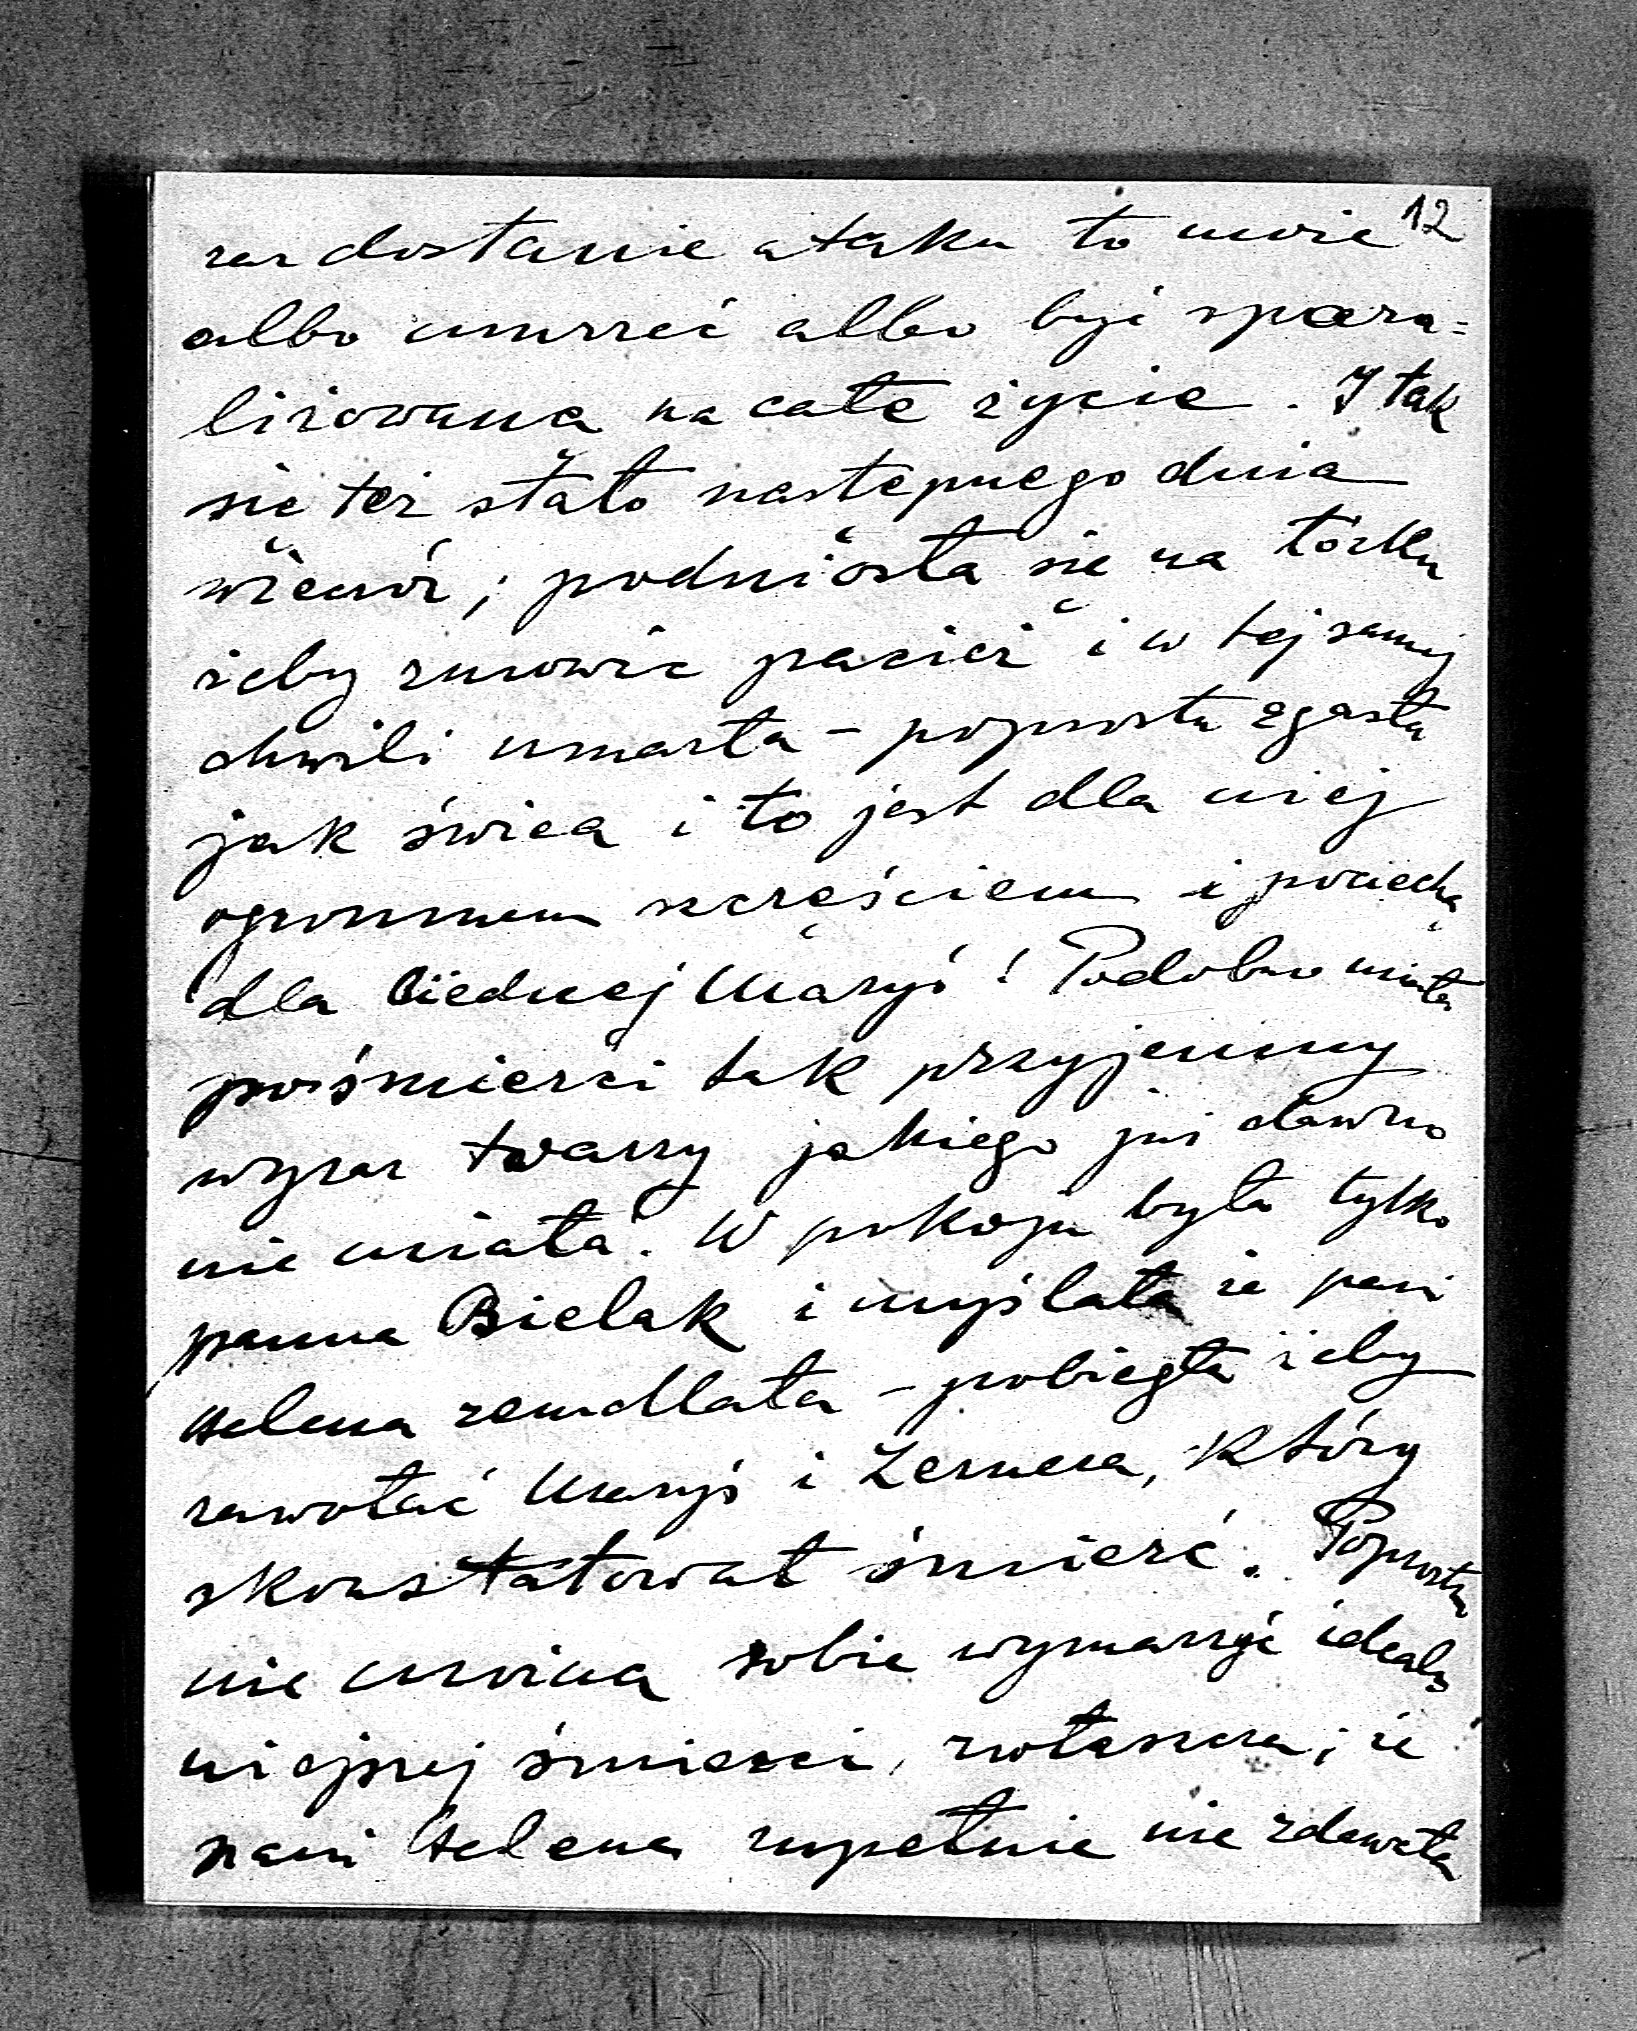 12
raz dostanie ataku to może
albo umrzeć albo być spara=
liżowana na całe życie. I tak
się też stało następnego dnia
wieczór; podniosła się na łóżku
żeby zmówić pacierz i w tej samej
chwili umarła – poprostu zgasła
jak świeca i to jest dla niej
ogromnem szczęściem i pociechą
dla biednej Marysi! Podobno miała
pośmierci tak przyjemny
wyraz twarzy jakiego już dawno
nie miała. W pokoju była tylko
panna Bielak i myślała że pani
Helena zemdlała – pobiegła żeby
zawołać Marysi i Lernera, który
skonstatował śmierć. Poprostu
nie można sobie wymarzyć ideal
niejszej śmierci, zwłaszcza, że
pani Helena zupełnie nie zdawała